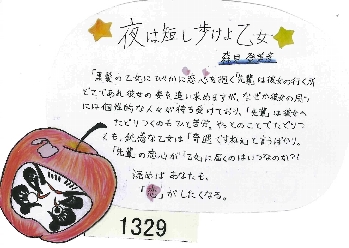 夜は短し歩けよ乙女
森見登美彦
「黒髪の乙女にひそかに恋心を抱く「先輩」は彼女の行く所
どこであれ彼女の姿を追い求めますが、なぜか彼女の周り
には個性的な人々が待ち受けており、「先輩」は彼女へ
たどりつくのもひと苦労。やっとのことでたどりつ
くも、純粋な乙女は「奇遇ですねえ」と言うばかり。
「先輩」の恋心が「乙女」に届くのはいつなのか?!
読めばあなたも、
「恋」がしたくなる。
1329